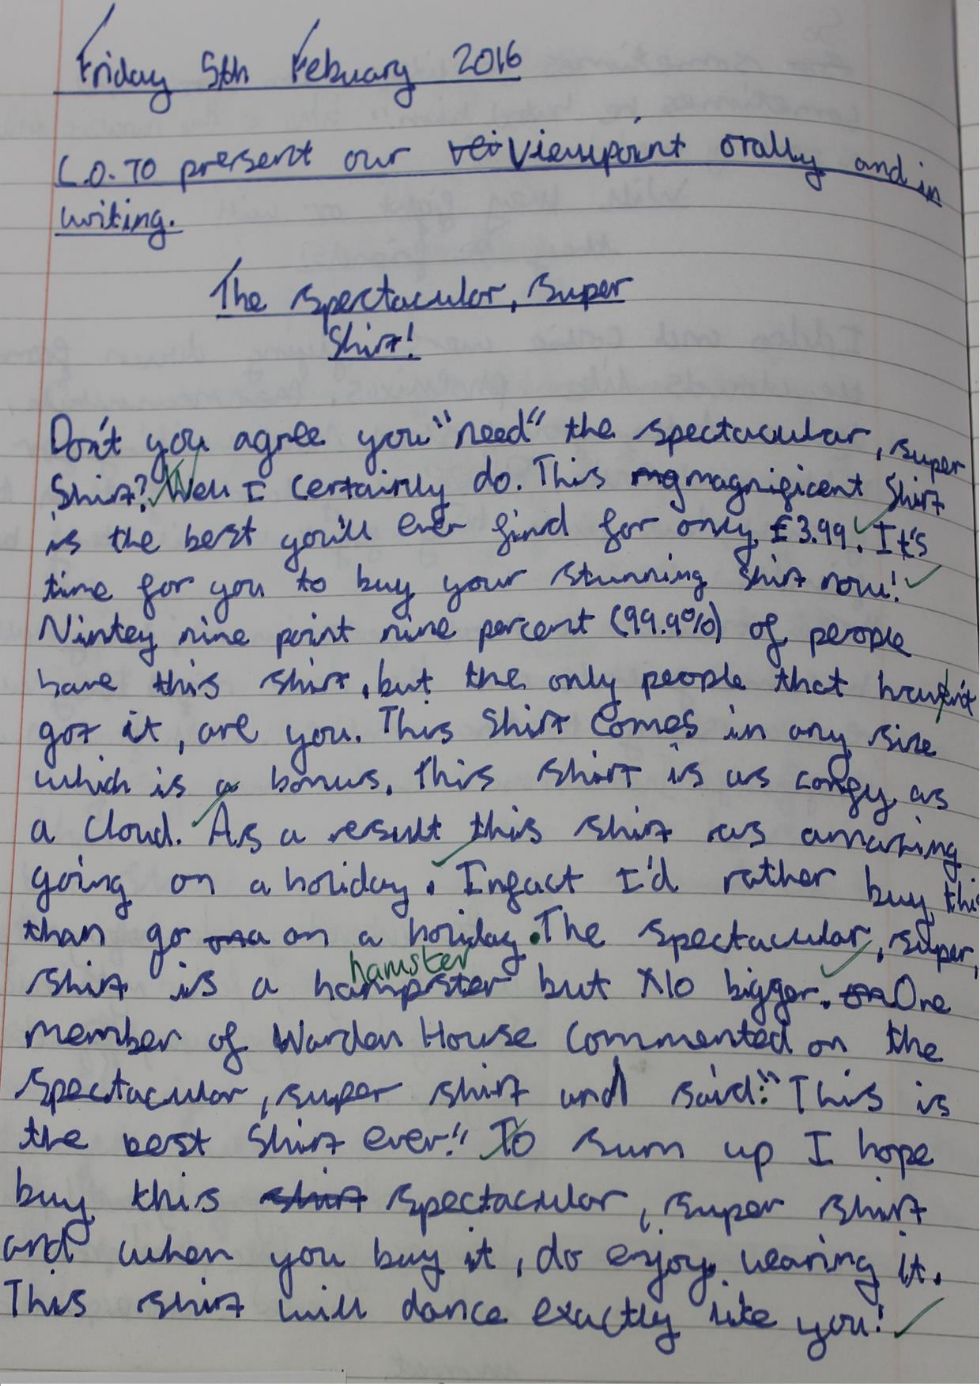 Friday 5th Febuary 2016
L.O. To present our Viewpoint orally and in
writing.
The spectacular, super
Shirt!
Don't you agree you "need" the spectacular, super
Shirt? Well I certainly do. This magnificent shirt
is the best you'll ever find for only £3.99. It's
time for you to buy your stunning shirt now!
Nintey nine point nine percent (99.9%) of people
have this shirt, but the only people that haven't
got it, are you. This shirt comes in any size
which is a bonus. This shirt is as comfy as
a cloud. As a result this shirt as amazing
going on a holiday. Infact I'd rather buy this
than go on a holiday. The spectacular, super,
hamster
shirt is a hampster but No bigger. One
member of Warden House commented on the
spectacular, super shirt and said: "This is
the best shirt ever!" To sum up I hope
buy this shirt spectacular, super shirt
and when you buy it, do enjoy wearing it.
This shirt will dance exactly like you!